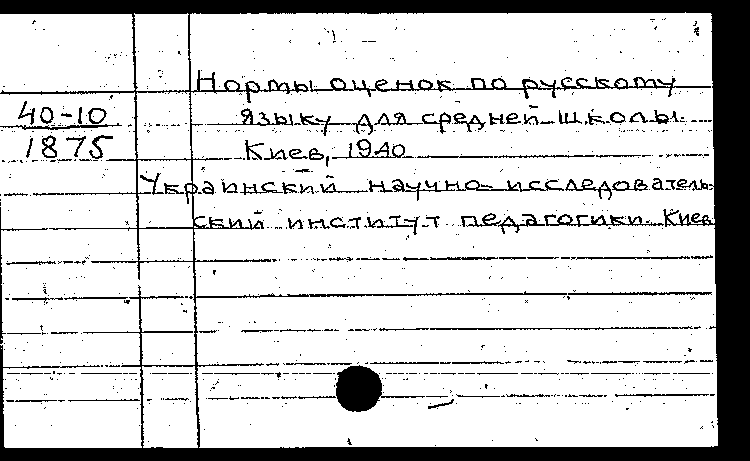 Нормы оценок по русскому
40-10
языку для средней школы.
1875
Киев, 1940
Украинский научно-исследователь-
ский институт педагогики. Киев